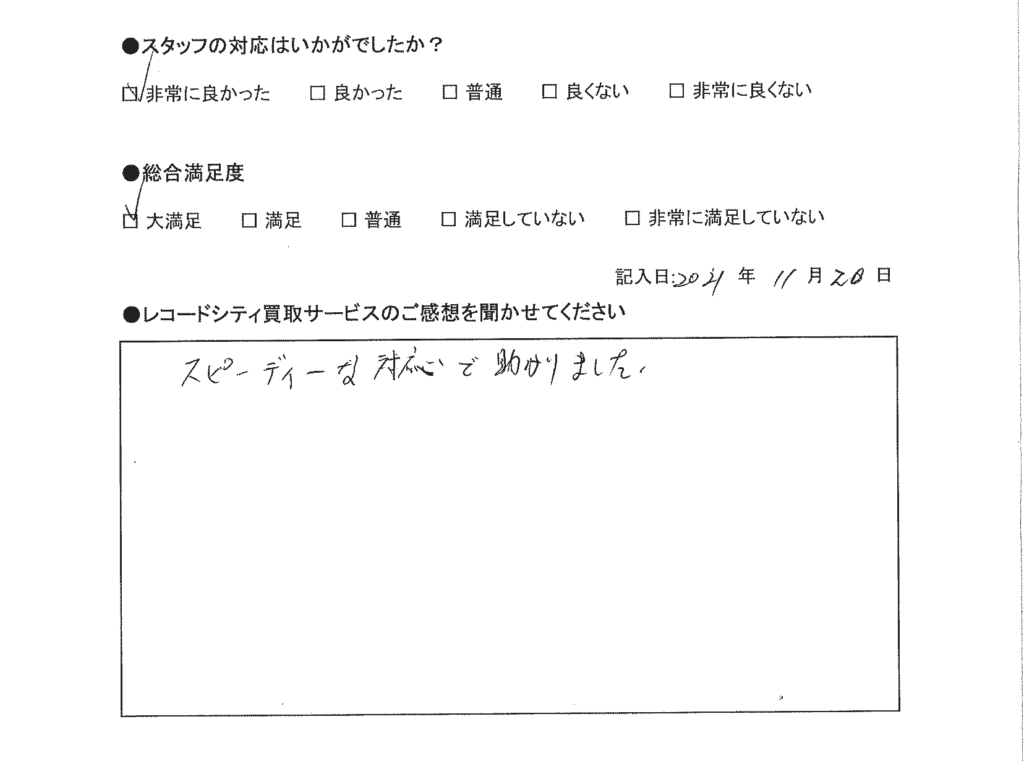 ●スタッフの対応はいかがでしたか？
☑ 非常に良かった □ 良かった □ 普通 □ 良くない □ 非常に良くない
●総合満足度
☑ 大満足 □ 満足 □ 普通 □ 満足していない □ 非常に満足していない
記入日:2021 年 11 月 28 日
●レコードシティ買取サービスのご感想を聞かせてください
スピーディーな対応で助かりました。